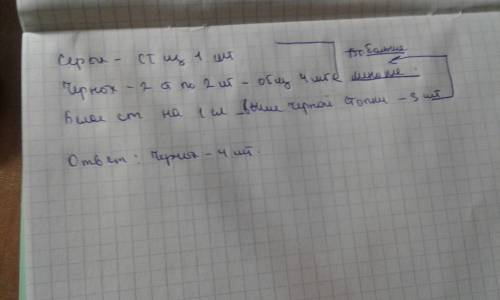 Серых - ст из 1 шт
больше
Черных - 2 ст по 2 шт - общ 4 шт меньше
Белое ст на 1 выше черной стопки - 3 шт
Ответ: Черных - 4 шт.